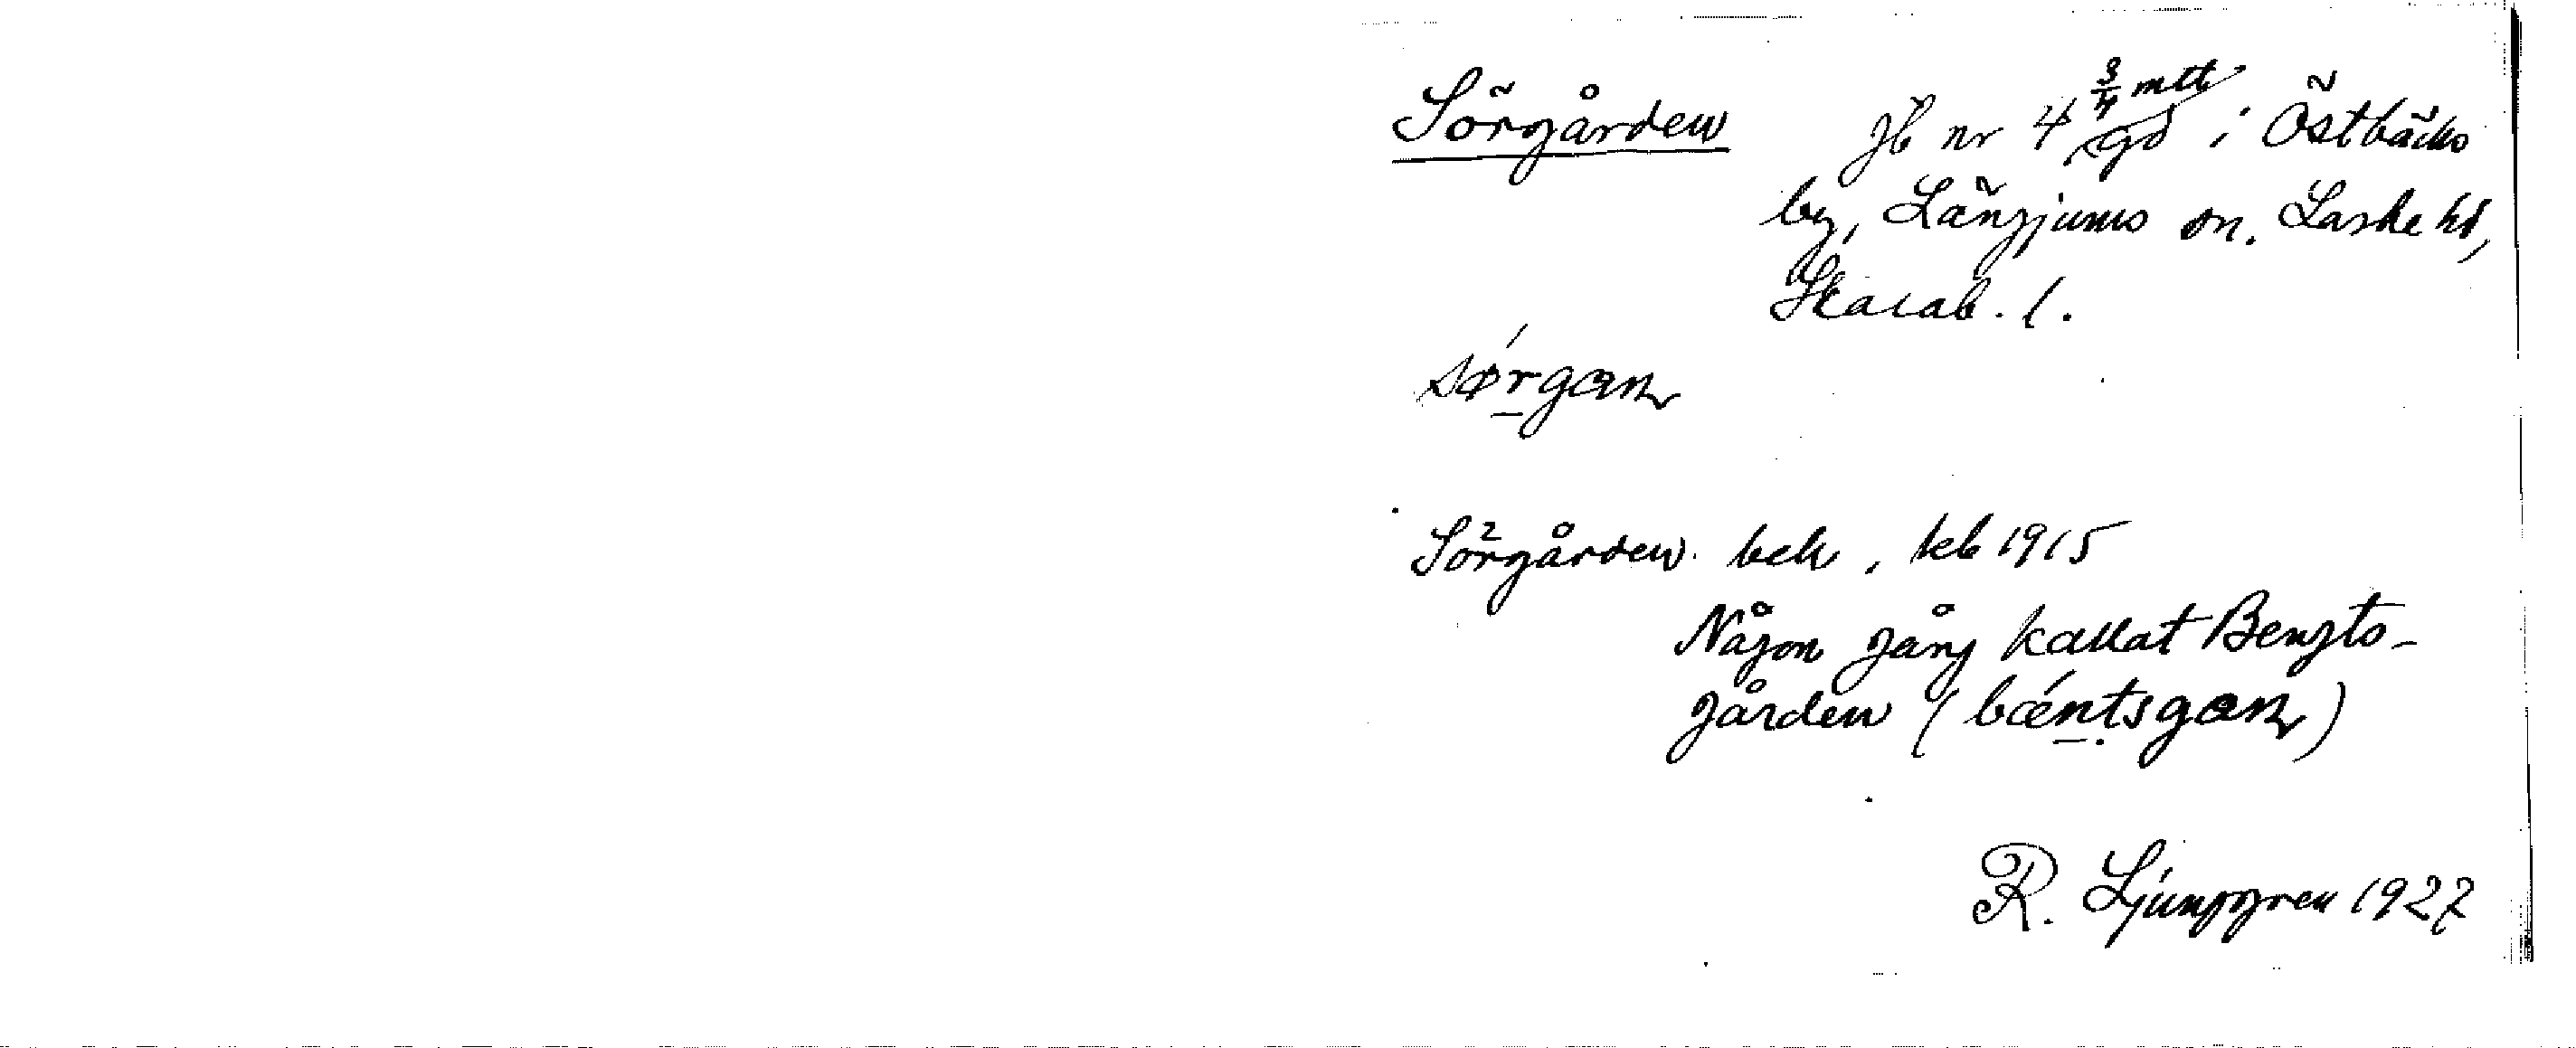 Sörgården Jb nr 4 3/4 mtl gd i Östbäcks
by, Längjums sn. Laske hd,
Skarab. l.
sǿrgan
Sörgården. beh, kb 1915
Någon gång kallat Bengts-
gården (bǽntsgan)
R. Ljunggren 1927